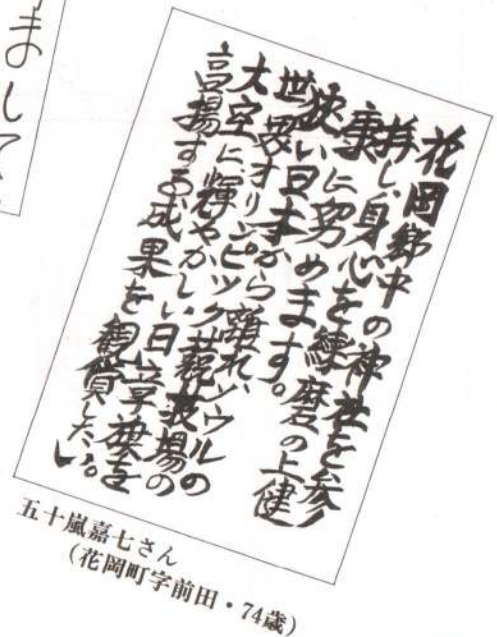 まして
花岡郷中の神社を参
拝し、身心を練磨の上健
康に努めます。
狭い日本から離れ、ソウルの
世界オリンピック競技場の
大空に輝やかしい日章旗を
高揚する成果を観賞したい。
五十嵐嘉七さん
(花岡町字前田・74歳)